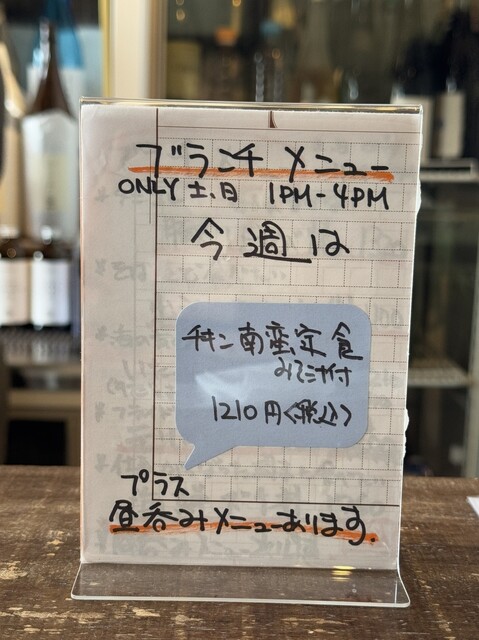 ブランチ メニュー
ONLY 土、日 1PM-4PM
今週は
チキン南蛮定食
みそ汁付
1210円<税込>
プラス
昼呑みメニューあります。